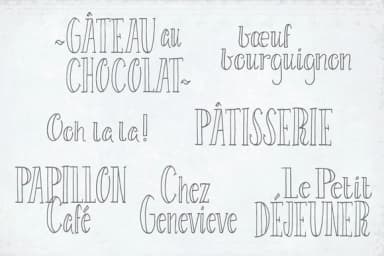 ~GÂTEAU au
CHOCOLAT~
bœuf
bourguignon
Ooh la la!
PÂTISSERIE
PAPILLON
Café
Chez
Genevieve
Le Petit
DÉJEUNER